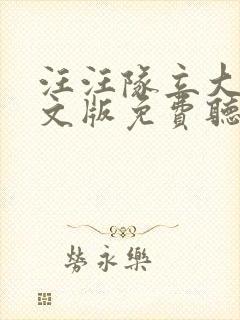 汪汪隊立大
文版免費聽
勞永樂